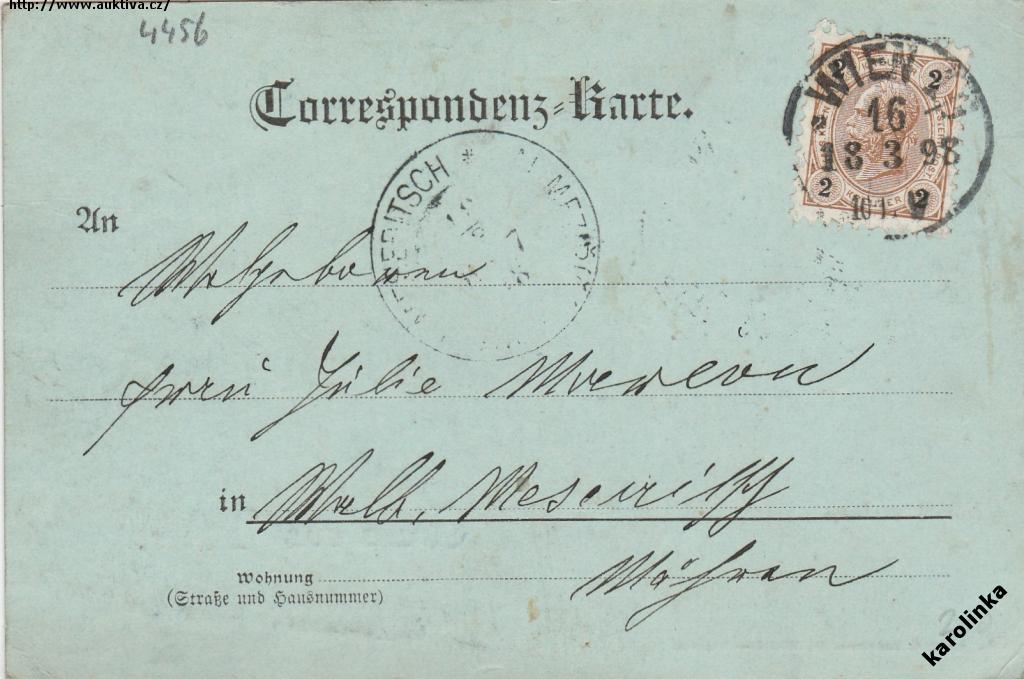 http://www.auktiva.cz/
4456
Correspondenz-Karte.
WIEN
16
18 3 98
2 2
2 2
MEZIŘ
An
Wohlgeboren
Frau Julie
in Wall. Meseritsch
Mähren
Wohnung
(Straße und Hausnummer)
karolinka